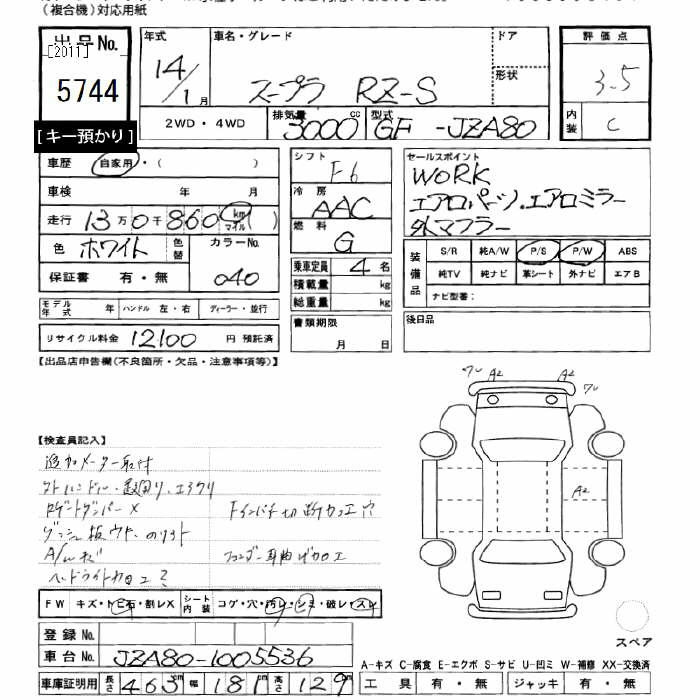 (複合機)対応用紙
出品No.
[2011]
5744
[キー預かり]
年式
14/1月
車名・グレード
スープラ RZ-S
ドア
形状
評価点
3.5
内装
C
2WD・4WD
排気量
3000cc
型式
GF -JZA80
車歴 自家用・( )
車検 年 月
走行 13万0千860 km マイル
色 ホワイト 色替
カラーNo.
040
保証書 有・無
モデル年式 年 ハンドル 左・右 ディーラー・並行
リサイクル料金 12100円 預託済
シフト
F6
冷房
AAC
燃料
G
乗車定員 4名
積載量 kg
総重量 kg
書類期限
月 日
セールスポイント
WORK
エアロパーツ.エアロミラー
外マフラー
装備品
S/R 純A/W P/S P/W ABS
純TV 純ナビ 革シート 外ナビ エアB
ナビ型番:
後日品
【出品店申告欄(不良箇所・欠品・注意事項等)】
【検査員記入】
追加メーター取付
外ハンドル・
ロゲートダンパー×
Fインパネ切断加工穴
ヘッドライト加工
FW キズ・トビ石・割レX シート内装 コゲ・穴・汚レ・シミ・破レ・スレ
登録No.
車台No. JZA80-1005536
車庫証明用 長さ 463 幅 181 高さ 129
ワレ A2 A2 ワレ
A2
スペア
A-キズ C-腐食 E-エクボ S-サビ U-凹ミ W-補修 XX-交換済
工具 有・無 ジャッキ 有・無